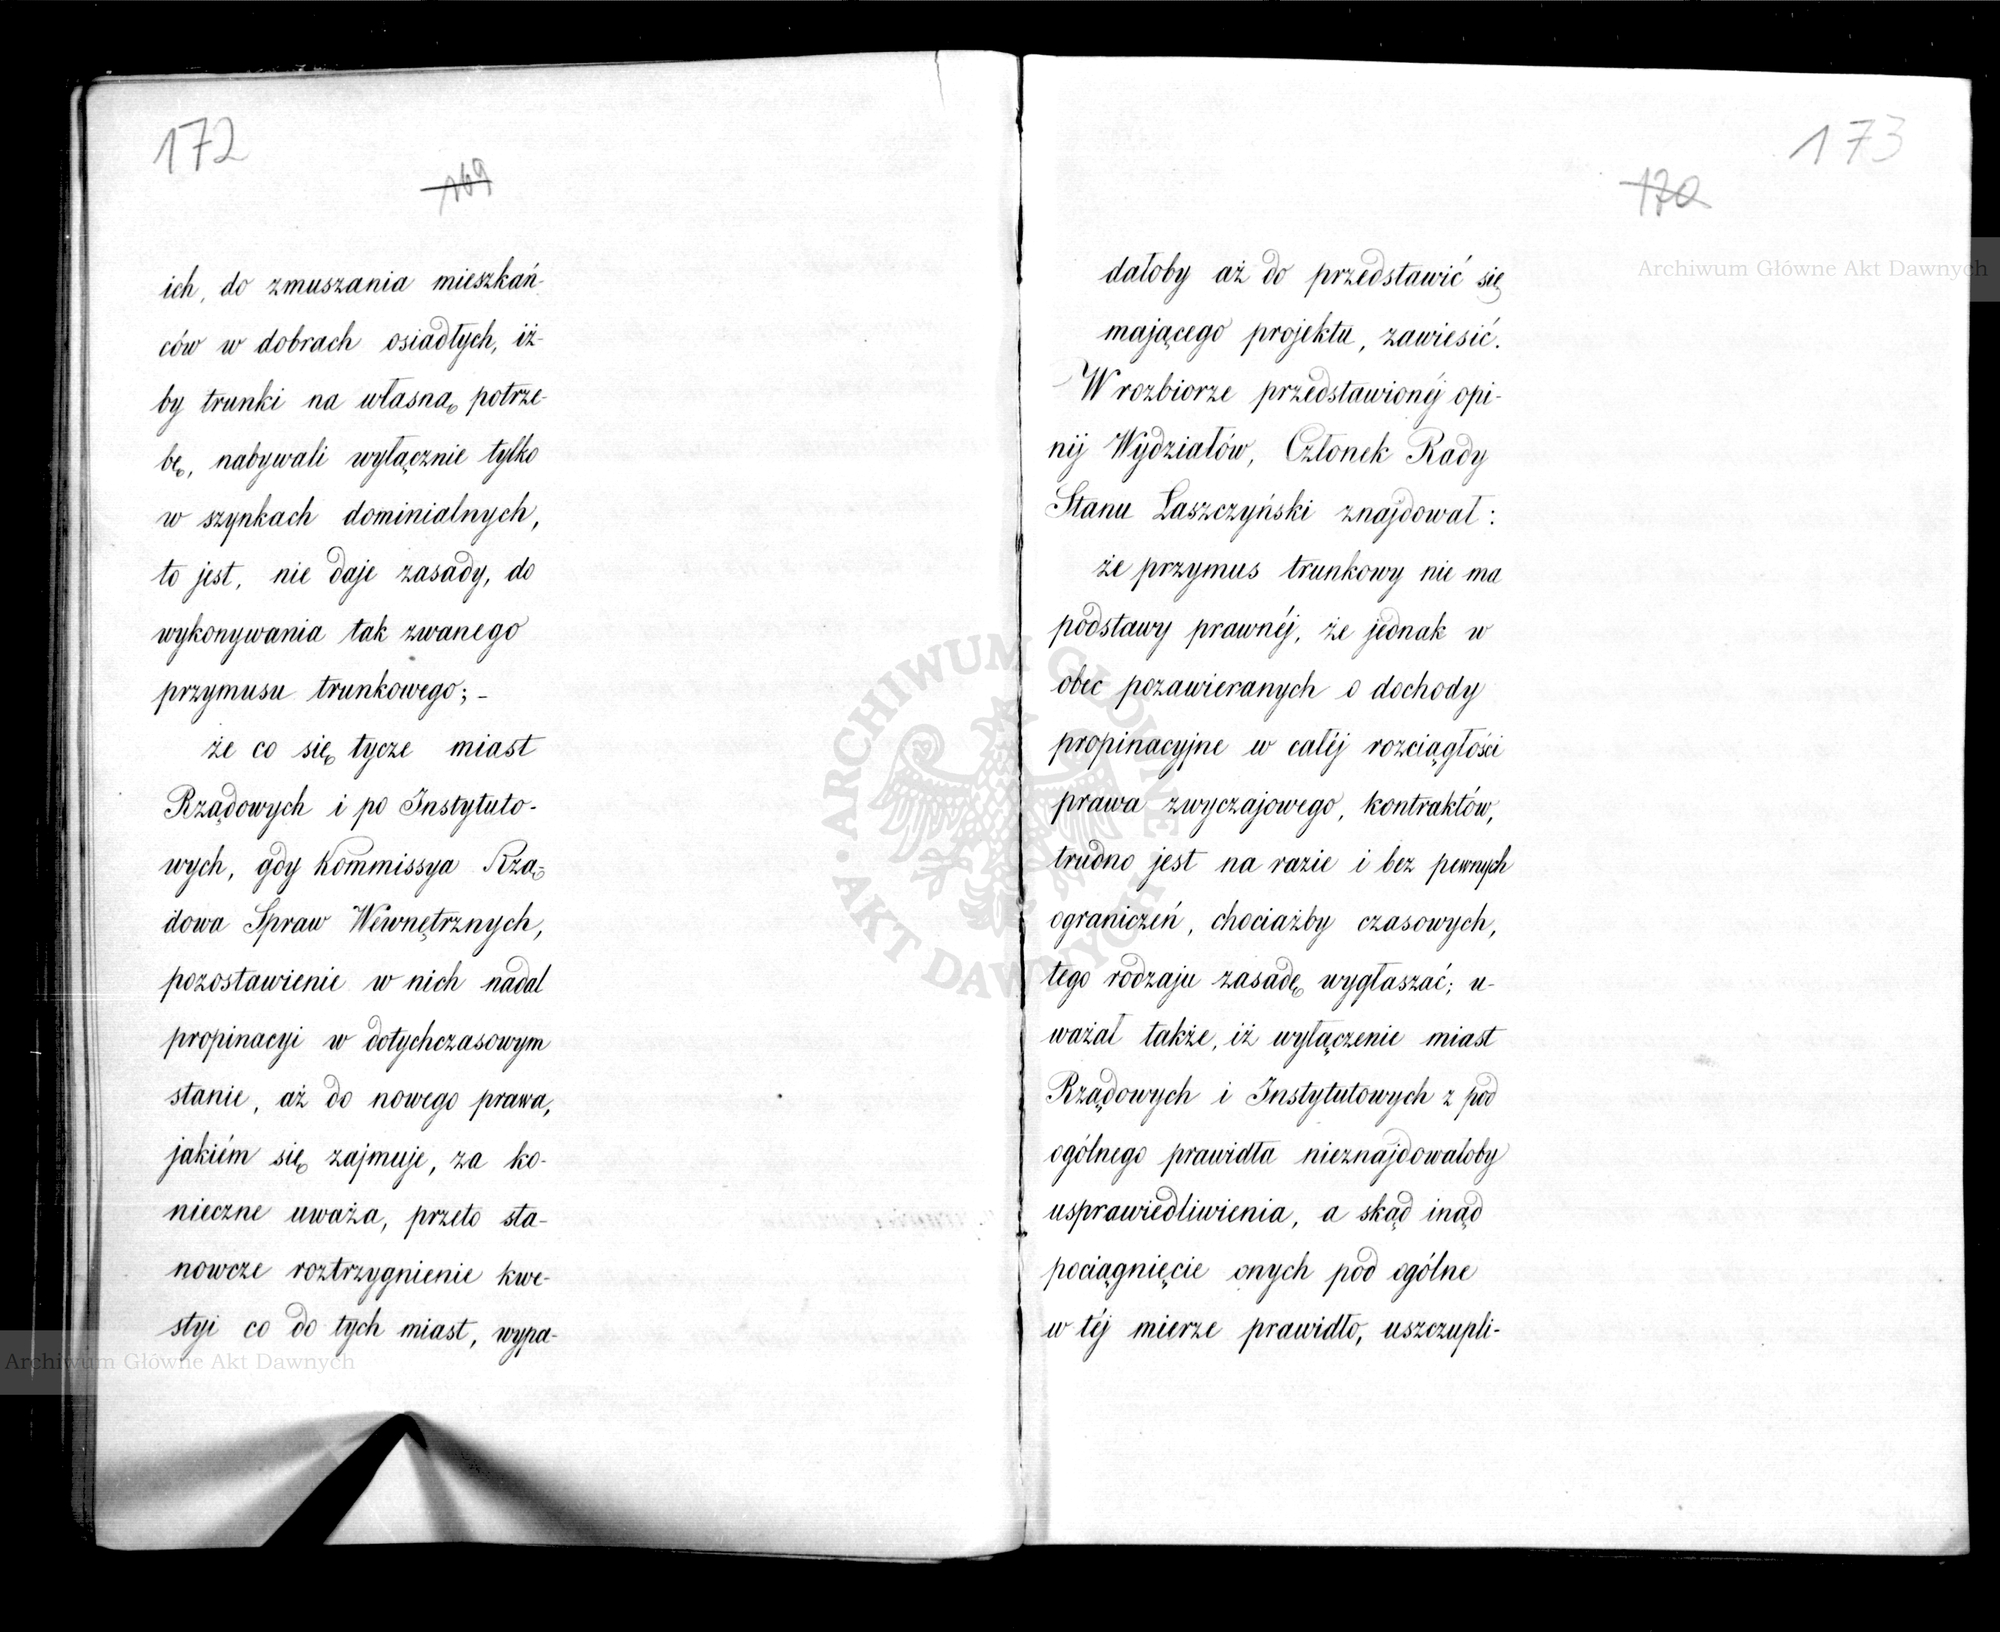 172
169
ich, do zmuszania mieszkań-
ców w dobrach osiadłych, iż-
by trunki na własną potrze-
bę, nabywali wyłącznie tylko
w szynkach dominialnych,
to jest, nie daje zasady, do
wykonywania tak zwanego
przymusu trunkowego; -
że co się tycze miast
Rządowych i po Instytuto-
wych, gdy Kommissya Rzą-
dowa Spraw Wewnętrznych,
pozostawienie w nich nadal
propinacyi w dotychczasowym
stanie, aż do nowego prawa,
jakiém się zajmuje, za ko-
nieczne uważa, przeto sta-
nowcze roztrzygnienie kwe-
styi co do tych miast, wypa-
173
170
dałoby aż do przedstawić się
mającego projektu, zawiesić.
W rozbiorze przedstawionéj opi-
nij Wydziałów, Członek Rady
Stanu Łaszczyński znajdował:
że przymus trunkowy nie ma
podstawy prawnéj, że jednak w
obec pozawieranych o dochody
propinacyjne w całéj rozciągłości
prawa zwyczajowego, kontraktów,
trudno jest na razie i bez pewnych
ograniczeń, chociażby czasowych,
tego rodzaju zasadę wygłaszać; u-
ważał także, iż wyłączenie miast
Rządowych i Instytutowych z pod
ogólnego prawidła nieznajdowałoby
usprawiedliwienia, a skąd inąd
pociągnięcie onych pod ogólne
w téj mierze prawidło, uszczupli-
Archiwum Główne Akt Dawnych
Archiwum Główne Akt Dawnych
ARCHIWUM GŁÓWNE AKT DAWNYCH